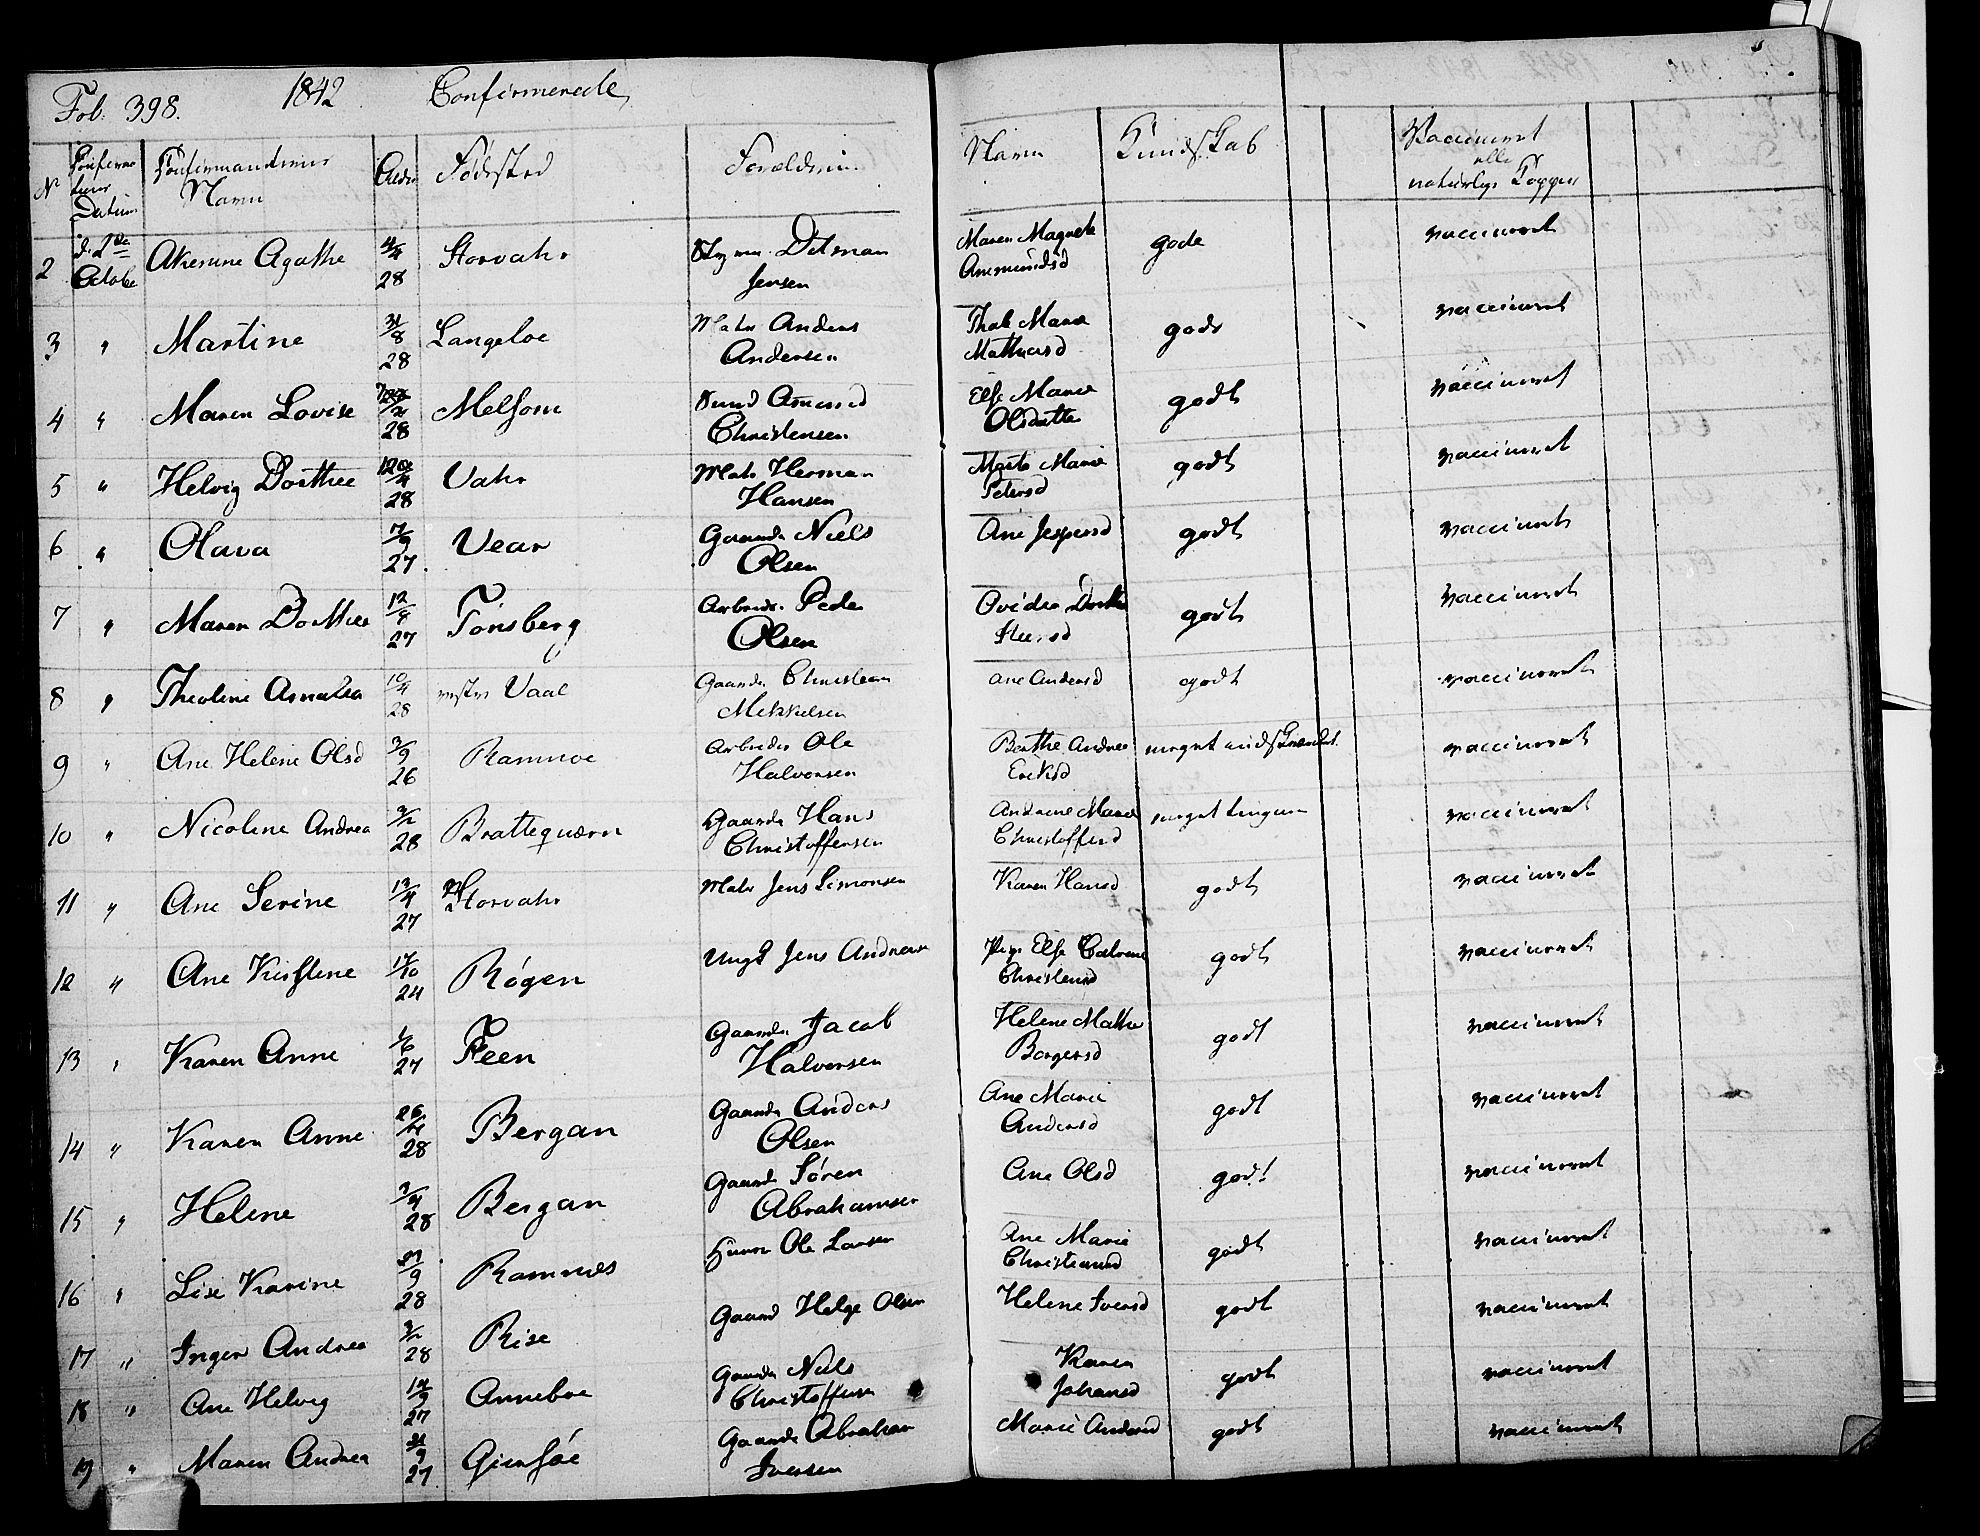 Fol. 398. 1842 Confirmerede
N Confirmationens Datum Confirmandernes Navn Alder Fødested Forældrenes Navn Kundskab Vaccineret eller naturlige Kopper
2 d. 2de October Akerine Agathe 28 Storvahr Ditman Jensen Maren Magrete Ammundsd gode vaccineret
3 " Martine 31/8 28 Langeloe Matr Anders Andersen Thale Marie Mathiasd gode vaccineret
4 " Maren Lovise 28 Melsom Christensen Else Marie Olsdatter godt vaccineret
5 " Helvig Dorthee 28 Vahr Matr Herman Hansen Marie Petersd godt vaccineret
6 " Olava 7/9 27. Vear Gaardm Niels Olsen Ane Jespersd godt vaccineret
7 " Maren Dorthea 12/8 27 Tønsberg Arbeider Peder Olsen Ovidia Dorthe godt vaccineret
8 " Theoline Amalia 10/4 28 Vaal Gaardm Christian Mikkelsen Ane Andersd godt vaccineret
9 " Ane Helene Olsd 3/9 26 Ramnoe Arbeider Ole Halvorsen Berthe Andrea Eriksd meget indskrænket vaccineret
10 " Nicoline Andrea 28 Brattequærn Gaardm Hans Christoffersen Andrine Marie Christoffersd meget vaccineret
11 " Ane Serine 13/4 27 Storvahr Matr Jens Simonsen Karen Hansd godt vaccineret
12 " Ane Kirstine 17/10 24 Røgen Ungk Jens Andreas Pige Else Cathrine Christensd godt vaccineret
13 " Karen Anne 1/6 27 Feen Gaardm Jacob Halvorsen Helene Mathea Borgersd godt vaccineret
14 " Karen Anne 28 Bergan Gaardm Anders Olsen Ane Marie Andersd godt vaccineret
15 " Helene 3/4 28 Bergan Gaardm Søren Abrahamsen Ane Olsd godt vaccineret
16 " Lise Karine 28 Ramnæs Ole Larsen Ane Marie Christiansd godt vaccineret
17 " Inger Andrea 28 Rise Gaardm Helge Olsen Helene Iversd godt vaccineret
18 " Ane Helvig 14/9 27 Anneboe Gaardm Niels Christoffersen Karen Johansd godt vaccineret
19 " Maren Andrea 27 Giersøe Gaardm Abraham Iversen Marie Andersd godt vaccineret